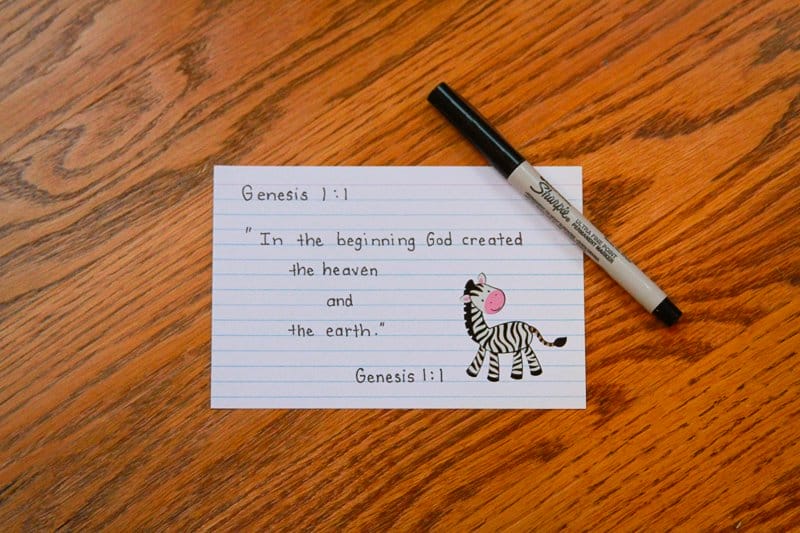 Genesis 1:1
"In the beginning God created
the heaven
and
the earth."
Genesis 1:1
Sharpie
ULTRA FINE POINT
PERMANENT MARKER